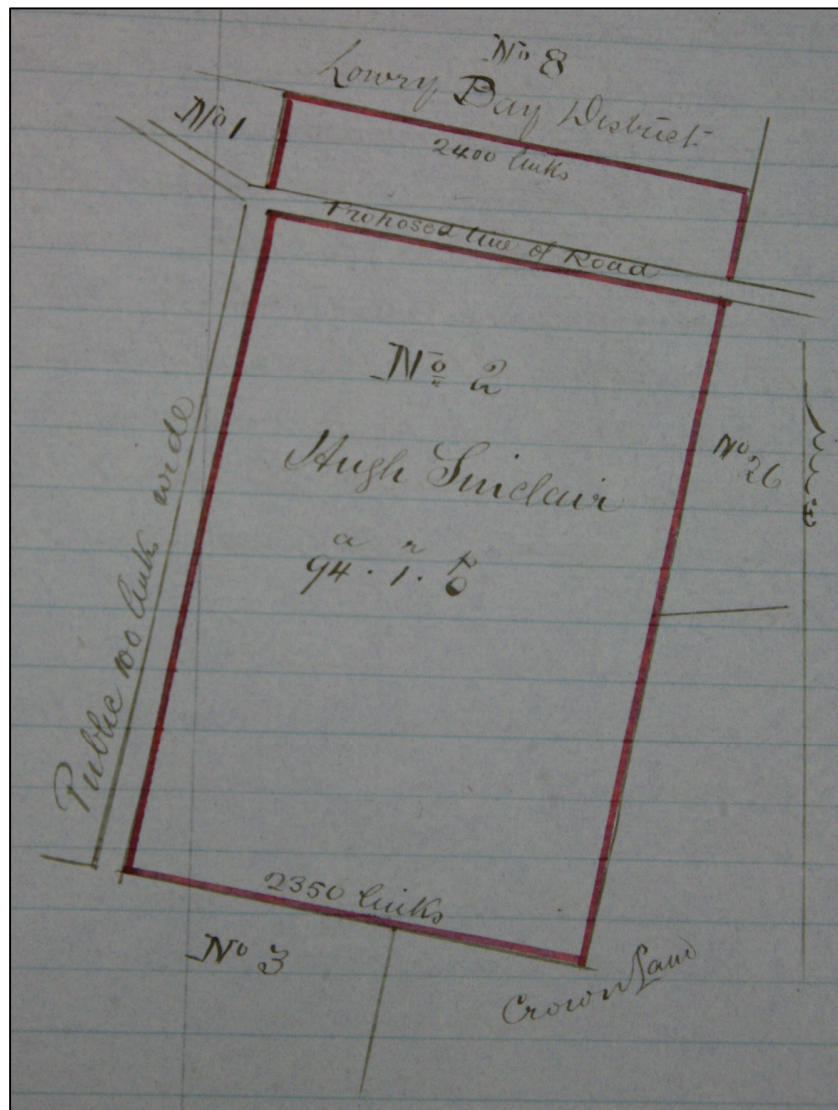 No 8
Lowry Bay District
No 1
2400 links
Proposed line of Road
No 2
Hugh Sinclair
a r p
94 . 1 . 0
No 26
Public 100 links wide
2350 links
No 3
Crown Land